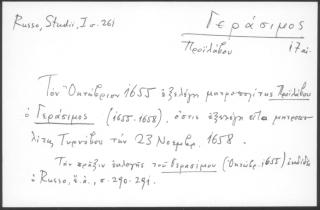 Russo, Studii, I σ. 261
Γεράσιμος
Προϊλάβου 17 αι.
Τὸν Ὀκτώβριον 1655 ἐξελέγη μητροπολίτης Προϊλάβου
ὁ Γεράσιμος (1655-1658), ὅστις ἐξελέγη εἶτα μητροπο
λίτης Τυρνόβου τὴν 23 Νοεμβρ. 1658.
Τὴν πρᾶξιν ἐκλογῆς τοῦ Γερασίμου (Ὀκτώβρ. 1655) ἐκδίδει
ὁ Russo, ἔ.ἀ., σ. 290-291.